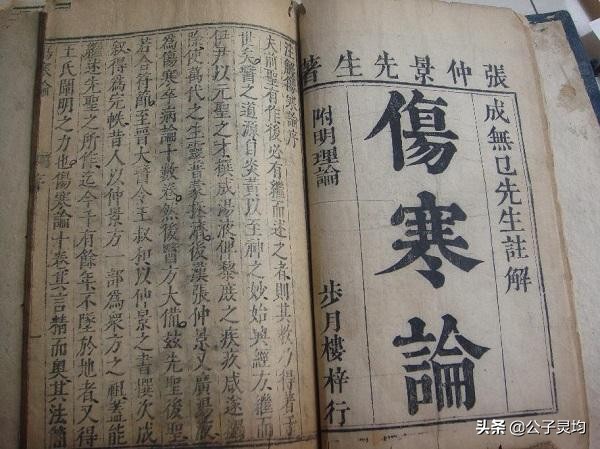 張仲景先生著
成無已先生註解
傷寒論
附明理論
步月樓梓行
注解傷寒論序
夫前聖有作後必有繼而述之者則其教乃得著于
世矣醫之道源自炎黃以至神之妙始興經方繼而
伊尹以元聖之才撰成湯液俾黎庶之疾疢咸遂蠲
除使萬代之生靈普蒙拯濟後漢張仲景又廣湯液
為傷寒卒病論十數卷然後醫方大備茲先聖後聖
若合符節至晉太醫令王叔和以仲景之書撰次成
叙得為完帙昔人以仲景方一部為衆方之祖蓋能
繼述先聖之所作迄今千有餘年不墜於地者又得
王氏闡明之力也傷寒論十卷其言精而奥其法簡
頭条 @公子灵均